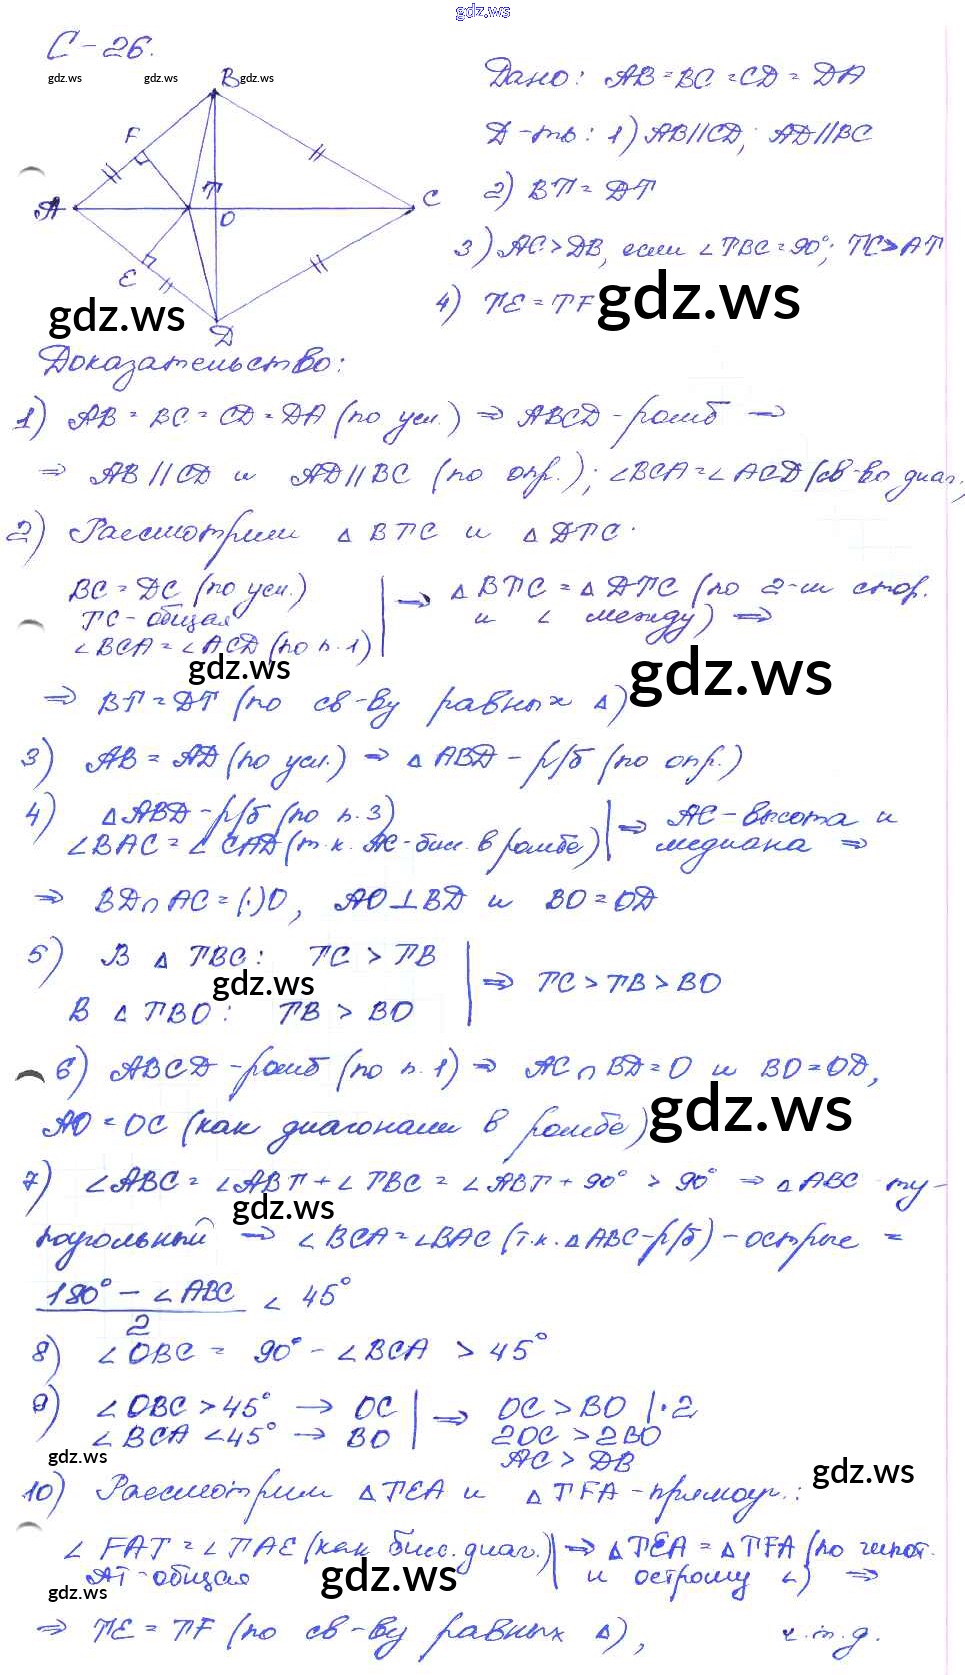 gdz.ws
С-26.
gdz.ws gdz.ws gdz.ws
B
F
A
T
O
C
E
D
Дано: AB=BC=CD=DA
Д-ть: 1) AB||CD; AD||BC
2) BT=DT
3) AC>DB, если ∠TBC=90°; TC>AT
4) TE=TF
gdz.ws
gdz.ws
Доказательство:
1) AB=BC=CD=DA (по усл.) ⇒ ABCD-ромб →
⇒ AB||CD и AD||BC (по опр.); ∠BCA=∠ACD (св-во диаг.
2) Рассмотрим △BTC и △DTC.
BC=DC (по усл.)
TC-общая
∠BCA=∠ACD (по п.1)
→ △BTC=△DTC (по 2-м стор.
и ∠ между) ⇒
gdz.ws
gdz.ws
⇒ BT=DT (по св-ву равных △)
3) AB=AD (по усл.) → △ABD-р/б (по опр.)
4) △ABD-р/б (по п.3)
∠BAC=∠CAD (т.к. AC-бис. в ромбе)
⇒ AC-высота и
медиана ⇒
⇒ BD∩AC=(·)O, AO⊥BD и BO=OD
5) В △TBC: TC>TB
gdz.ws
В △TBO: TB>BO
⇒ TC>TB>BO
6) ABCD-ромб (по п.1) ⇒ AC∩BD=O и BO=OD,
AO=OC (как диагонали в ромбе)
gdz.ws
7) ∠ABC=∠ABT+∠TBC=∠ABT+90°>90° ⇒ △ABC ту-
gdz.ws
поугольный ⇒ ∠BCA=∠BAC (т.к. △ABC-р/б)-острые =
180°-∠ABC
2
< 45°
8) ∠OBC = 90°-∠BCA > 45°
9) ∠OBC>45° → OC
∠BCA<45° → BO
⇒ OC>BO |·2
2OC>2BO
AC>DB
gdz.ws
gdz.ws
10) Рассмотрим △TEA и △TFA-прямоуг.:
∠FAT=∠TAE (как бисс. диаг.)
AT-общая
⇒ △TEA=△TFA (по гипот.
и острому ∠) ⇒
gdz.ws
gdz.ws
⇒ TE=TF (по св-ву равных △), ч.т.д.